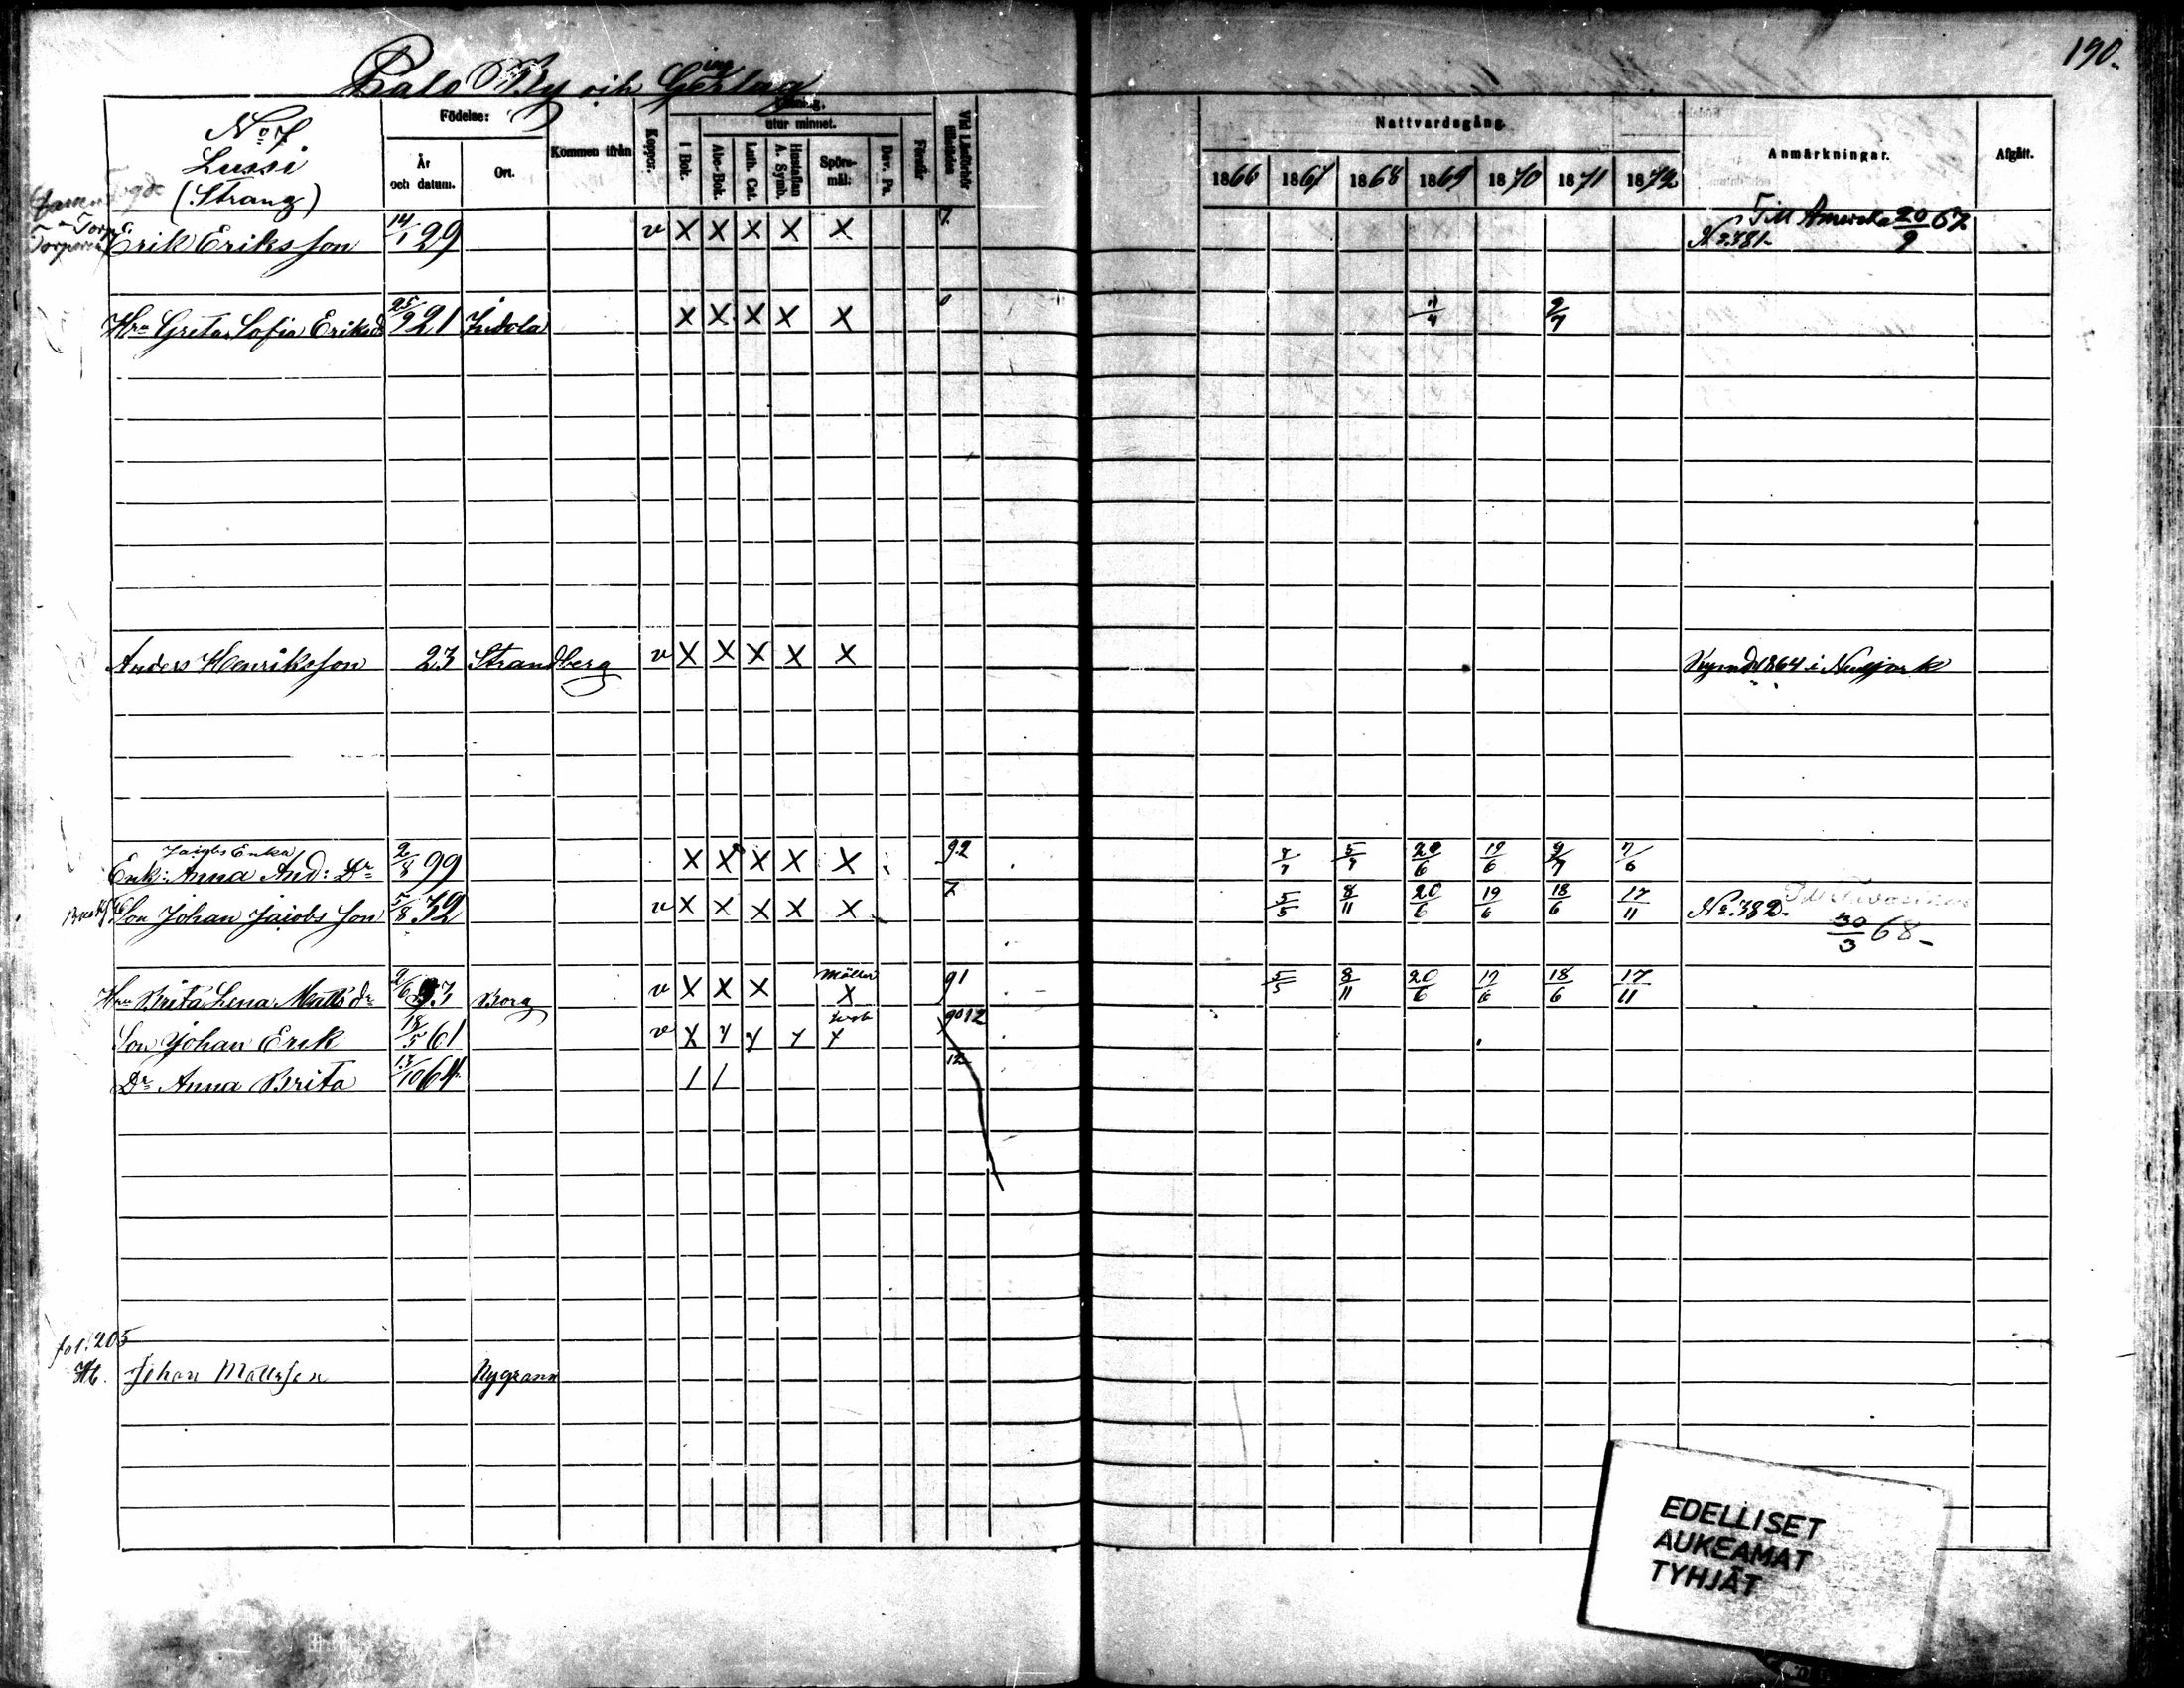 190.
Palo By och
No 7
Lussi
(Strang)
Födelse:
År
och datum.
Ort.
Kommen ifrån
Koppor.
I Bok.
utur minnet.
Abc-Bok.
Luth. Cat.
Hustaflan
A. Symb.
Spörs-
mål:
Dav. Ps.
Förstår
Vid Läsförhör
tillstädes
Nattvardsgång.
1866 1867 1868 1869 1870 1871 1872
Anmärkningar.
Afgått.
Erik Eriksson 14/1 29 v X X X X X 7. Till Amerika 20/9 67
No 381.
Hru Greta Sofia Eriksd 25/9 21 Indola X X X X X 11/4 2/7
Anders Henriksson 23 Strandberg v X X X X X Rymd 1864 i Newjork
Jacobs Enka
Enk: Anna And: Dr 2/8 99 X X X X X 92 7/7 5/7 20/6 19/6 9/7 7/6
Son Johan Jacobsson 5/8 32 v X X X X X 7 5/5 8/11 20/6 19/6 18/6 17/11 No 382.
30/3 68
Hru Brita Lena Matts dr 2/6 37 Borg v X X X Möller X 91 5/5 8/11 20/6 19/6 18/6 17/11
Son Johan Erik 18/5 61 v X 9012
Dr Anna Brita 17/10 64 / / 12
fol. 205
Johan Mattsson Nygrann
EDELLISET
AUKEAMAT
TYHJÄT